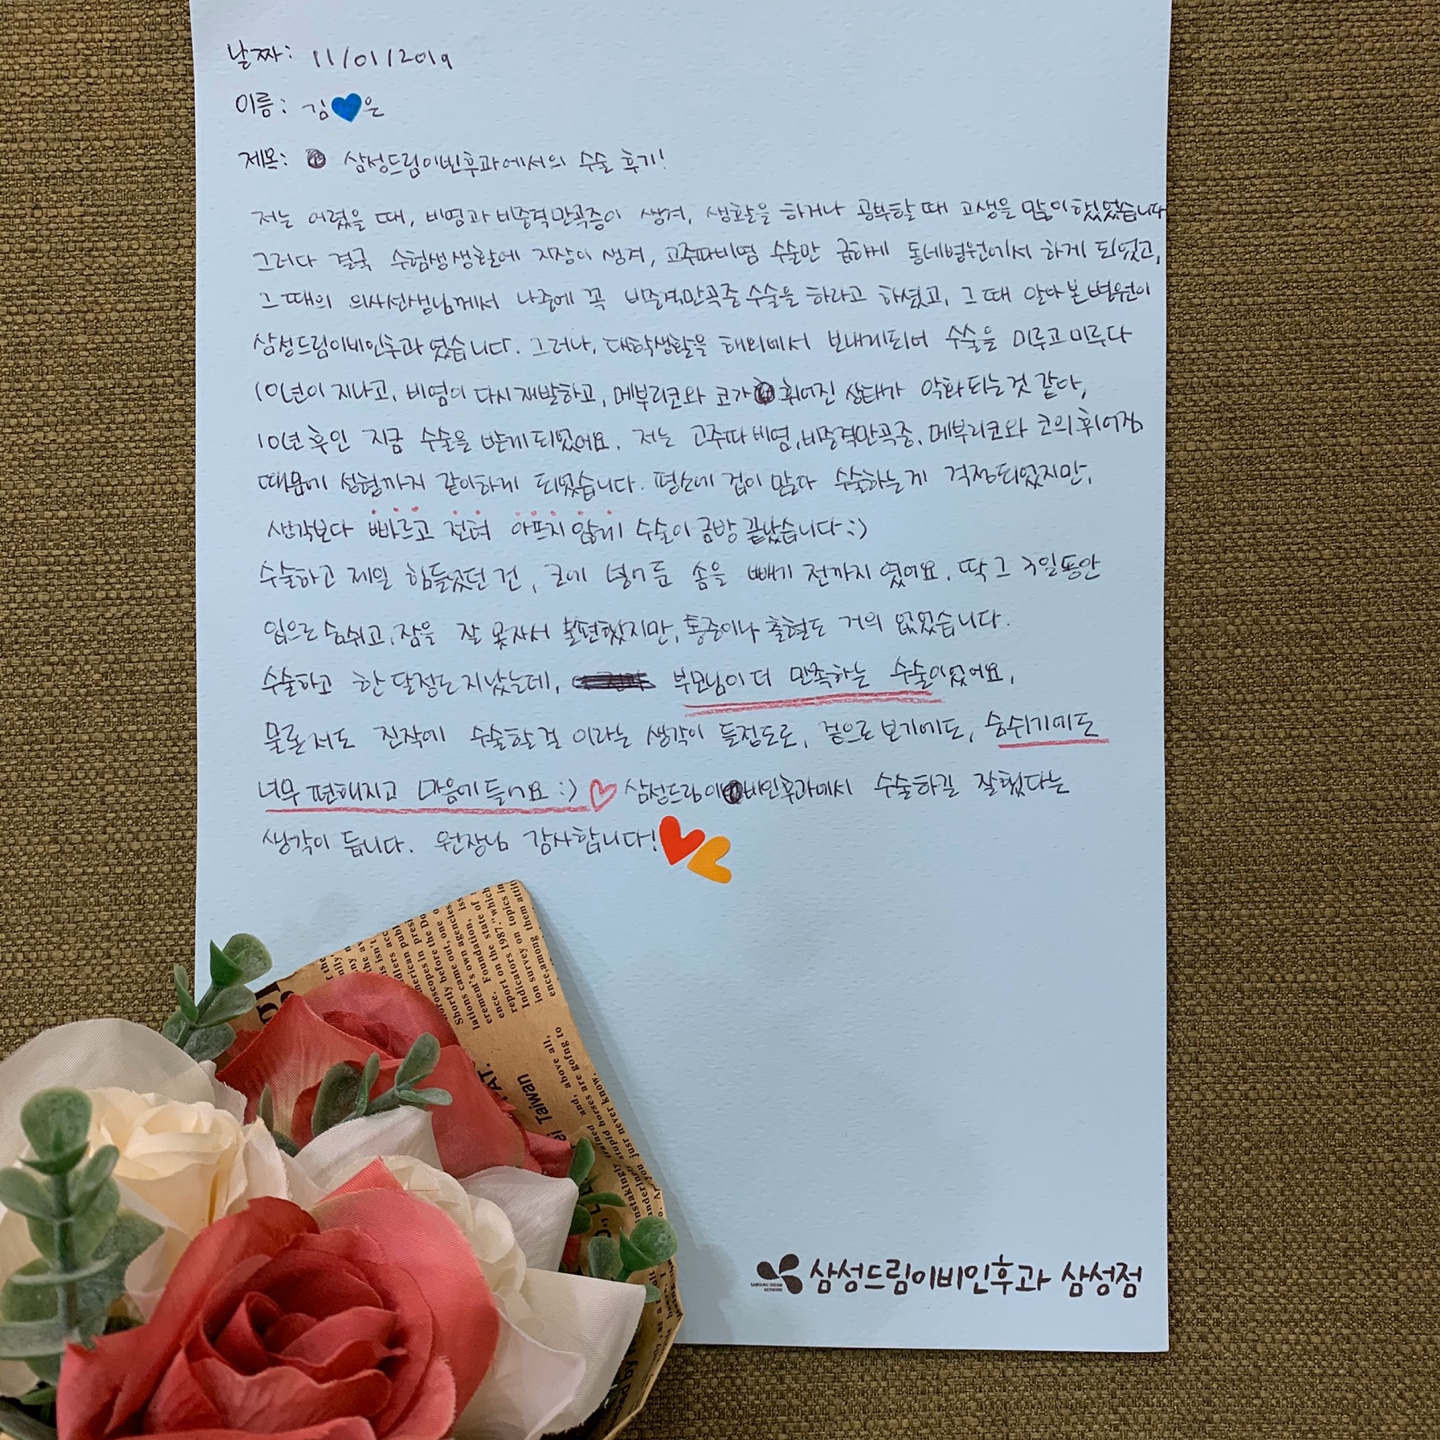 날짜: 11/01/2019
이름: 김💙은
제목: 삼성드림이빈후과에서의 수술 후기!
저는 어렸을 때, 비염과 비중격만곡증이 생겨, 생활을 하거나 공부할 때 고생을 많이 했었습니다
그러다 결국 수험생생활에 지장이 생겨, 고주파비염 수술만 급하게 동네병원에서 하게 되었고,
그 때의 의사선생님께서 나중에 꼭 비중격만곡증 수술을 하라고 하셨고, 그 때 알아본 병원이
삼성드림이비인후과였습니다. 그러나, 대학생활을 해외에서 보내게되어 수술을 미루고 미루다
10년이 지나고, 비염이 다시 재발하고, 메부리코와 코가 휘어진 상태가 악화되는 것 같아,
10년 후인 지금 수술을 받게 되었어요. 저는 고주파 비염, 비중격만곡증, 메부리코와 코의 휘어짐
때문에 성형까지 같이하게 되었습니다. 평소에 겁이 많다 수술하는게 걱정되었지만,
생각보다 빠르고 전혀 아프지 않게 수술이 금방 끝났습니다 :)
수술하고 제일 힘들었던 건, 코에 넣어둔 솜을 빼기 전까지였어요. 딱 그 3일동안
입으로 숨쉬고, 잠을 잘 못자서 불편했지만, 통증이나 출혈도 거의 없었습니다.
수술하고 한 달정도 지났는데, 부모님이 더 만족하는 수술이었어요.
물론 저도 진작에 수술할걸 이라는 생각이 들정도로, 겉으로 보기에도, 숨쉬기에도
너무 편해지고 마음에 들어요 :) ♡ 삼성드림이비인후과에서 수술하길 잘했다는
생각이 듭니다. 원장님 감사합니다!
삼성드림이비인후과 삼성점
SAMSUNG DREAM
NETWORK